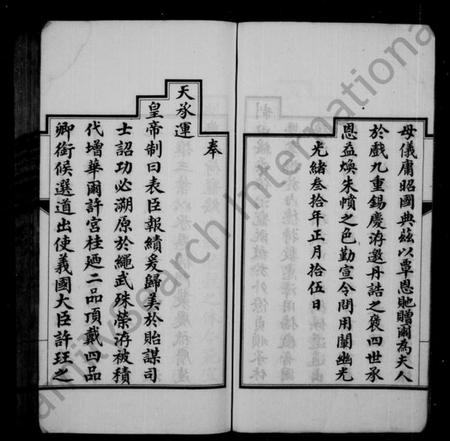 母儀庸昭國典茲以覃恩貤贈爾為夫人
於戲九重錫慶洊邀丹誥之褒四世承
恩益煥朱幩之色勤宣令問用闡幽光
光緒叁拾年正月拾伍日
奉
天承運
皇帝制曰表臣報績爰歸美於貽謀司
士詔功必溯原於繩武殊榮洊被積
代增華爾許宮桂廼二品頂戴四品
卿銜候選道出使義國大臣許珏之
FamilySearch International